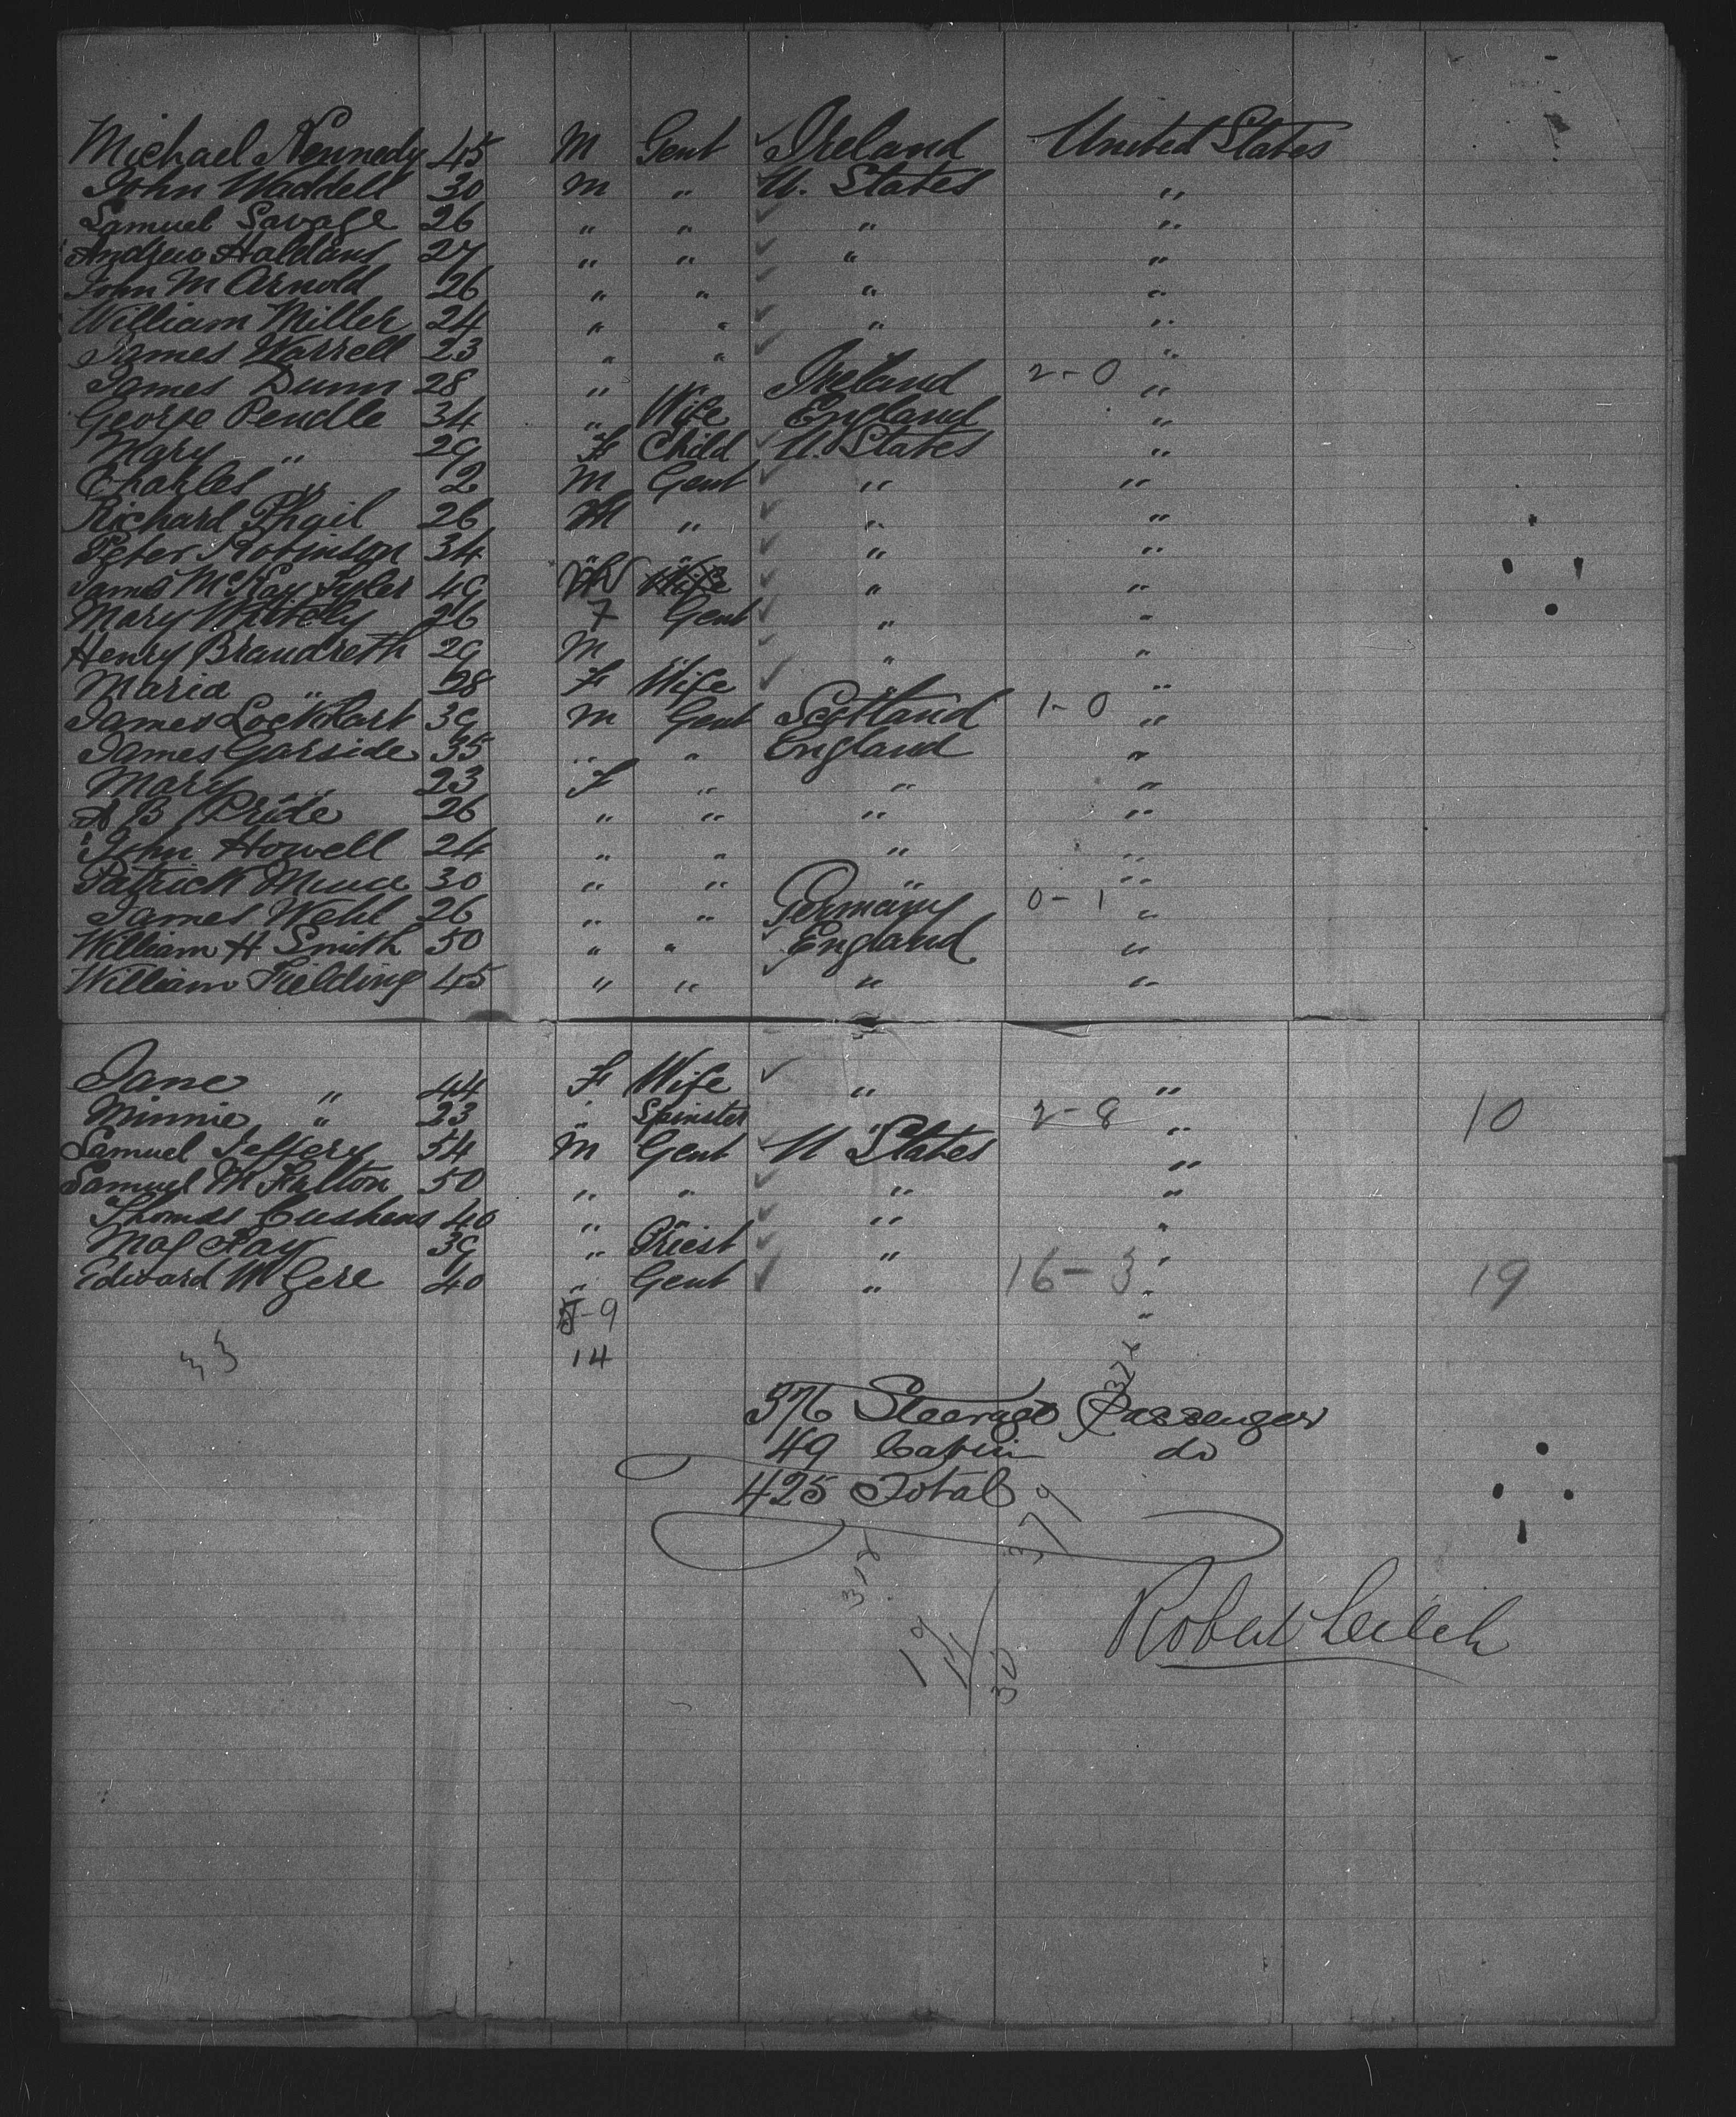 Michael Kennedy 45 M Gent ✓ Ireland United States
John Waddell 30 M " U. States "
Samuel Savage 26 " " ✓ " "
Andrew Haldane 27 " " ✓ " "
John M Arnold 26 " " ✓ " "
William Miller 24 " " ✓ " "
James Worrell 23 " " ✓ "
James Dunn 28 " " Ireland 2-0 "
George Pendle 34 " Wife England "
Mary " 29 F Child ✓ U. States "
Charles " 2 M Gent ✓ " "
Richard 26 M " ✓ " "
Peter Robinson 34 " " ✓ " "
James McKay Tyler 49 ✓ " "
Mary Whitely 26 F Gent ✓ " "
Henry Brandreth 29 M " ✓ " "
Maria " 28 F Wife ✓ " "
James Lockhart 39 M Gent Scotland 1-0 "
James Garside 35 " " England "
Mary " 23 F " " "
A B Pride 26 " " " "
John Howell 24 " " " "
Patrick 30 " " " "
James Wehl 26 " " Germany 0-1 "
William H Smith 50 " " ✓ England "
William Fielding 45 " " ✓ " "
Jane " 44 F Wife ✓ " "
Minnie " 23 " Spinster " 2-8 " 10
Samuel Jeffery 54 M Gent ✓ U States "
Samuel M Fulton 50 " " ✓ " "
Thomas Cushens 40 " " ✓ " "
Fay 39 " Priest ✓ " "
Edward M Gere 40 " Gent ✓ " 16-3 " 19
-9 "
33 14
376 Steerage Passenger
49 Cabin do
425 Total
379
Robert Leitch